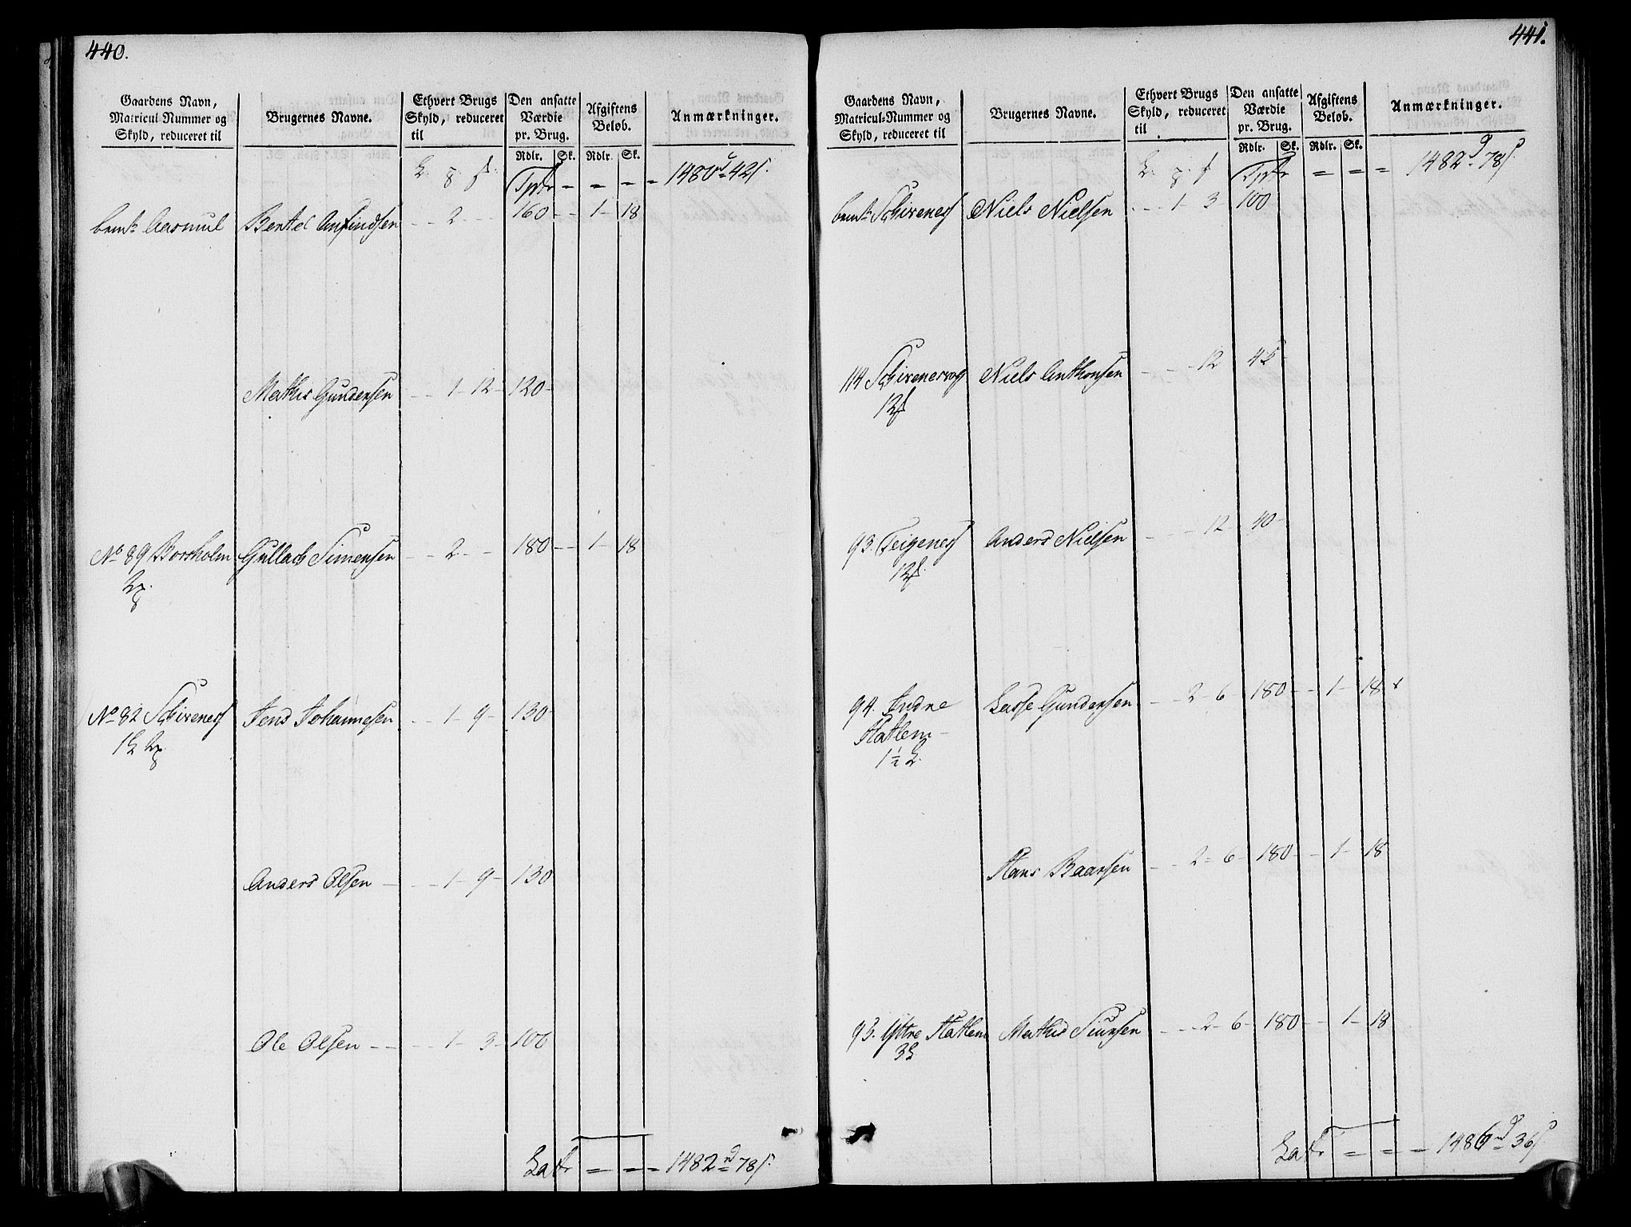 440.
Gaardens Navn, Matricul-Nummer og Skyld, reduceret til
Brugernes Navne.
Ethvert Brugs Skyld, reduceret til
Den ansatte Værdie pr. Brug.
Afgiftens Beløb.
Anmærkninger.
Rdlr. Sk. Rdlr. Sk.
Tpr - - - - 1480 42
Aasmul Bertel Anfindsen - 2 - - 160 - - 1 - 18
Mathis Gundersen - - 1 - 12 - 120 -
No 89 Borsholm Gullach Simensen - - 2 - - 180 - - 1 - 18
2
No 82 Schirenes Jens Johannesen - - 1 - 9 - 130
1 2
Anders Olsen - - - 1 - 9 - 130
Ole Olsen - - - 1 - 3 - 100
Latr = - - 1482 78
441.
Gaardens Navn, Matricul-Nummer og Skyld, reduceret til
Brugernes Navne.
Ethvert Brugs Skyld, reduceret til
Den ansatte Værdie pr. Brug.
Afgiftens Beløb.
Anmærkninger.
Rdlr. Sk. Rdlr. Sk.
Tpr = = = 1482 78
Schirenes Niels Nielsen - - 1 - 3 100
114 Niels Anthonsen - - - 12
12
93. Teigenes Anders Nielsen - - 12 - 40 -
12
94. Indre Lasse Gundersen - - 2 - 6 - 180 - - 1 - 18
Hatlem -
1 1/2
Hans Baarsen - - 2 - 6 - 180 - - 1 - 18
95. Yttre Hatlem Mathis Siursen - - - 2 - 6 - 180 - - 1 - 18
3
Latr = = = 36